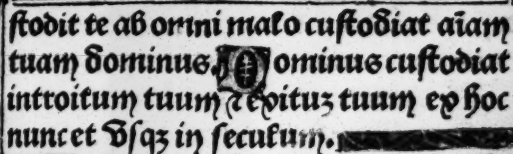 ſtodit te ab omni malo cuſtodiat aīam
tuam dominus. Dominus cuſtodiat
introitum tuum ⁊ exituꝫ tuum ex hoc
nunc et vſqꝫ in ſeculum.